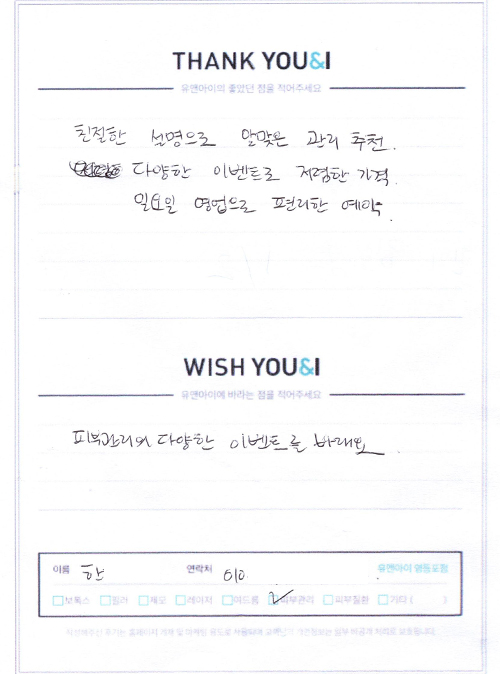 THANK YOU&I
유앤아이의 좋았던 점을 적어주세요
친절한 설명으로 알맞은 관리 추천.
다양한 이벤트로 저렴한 가격.
일요일 영업으로 편리한 예약.
WISH YOU&I
유앤아이에 바라는 점을 적어주세요
피부관리의 다양한 이벤트를 바래요.
이름 한 연락처 010 유앤아이 영등포점
보톡스 필러 제모 레이저 여드름 피부관리 피부질환 기타 ( )